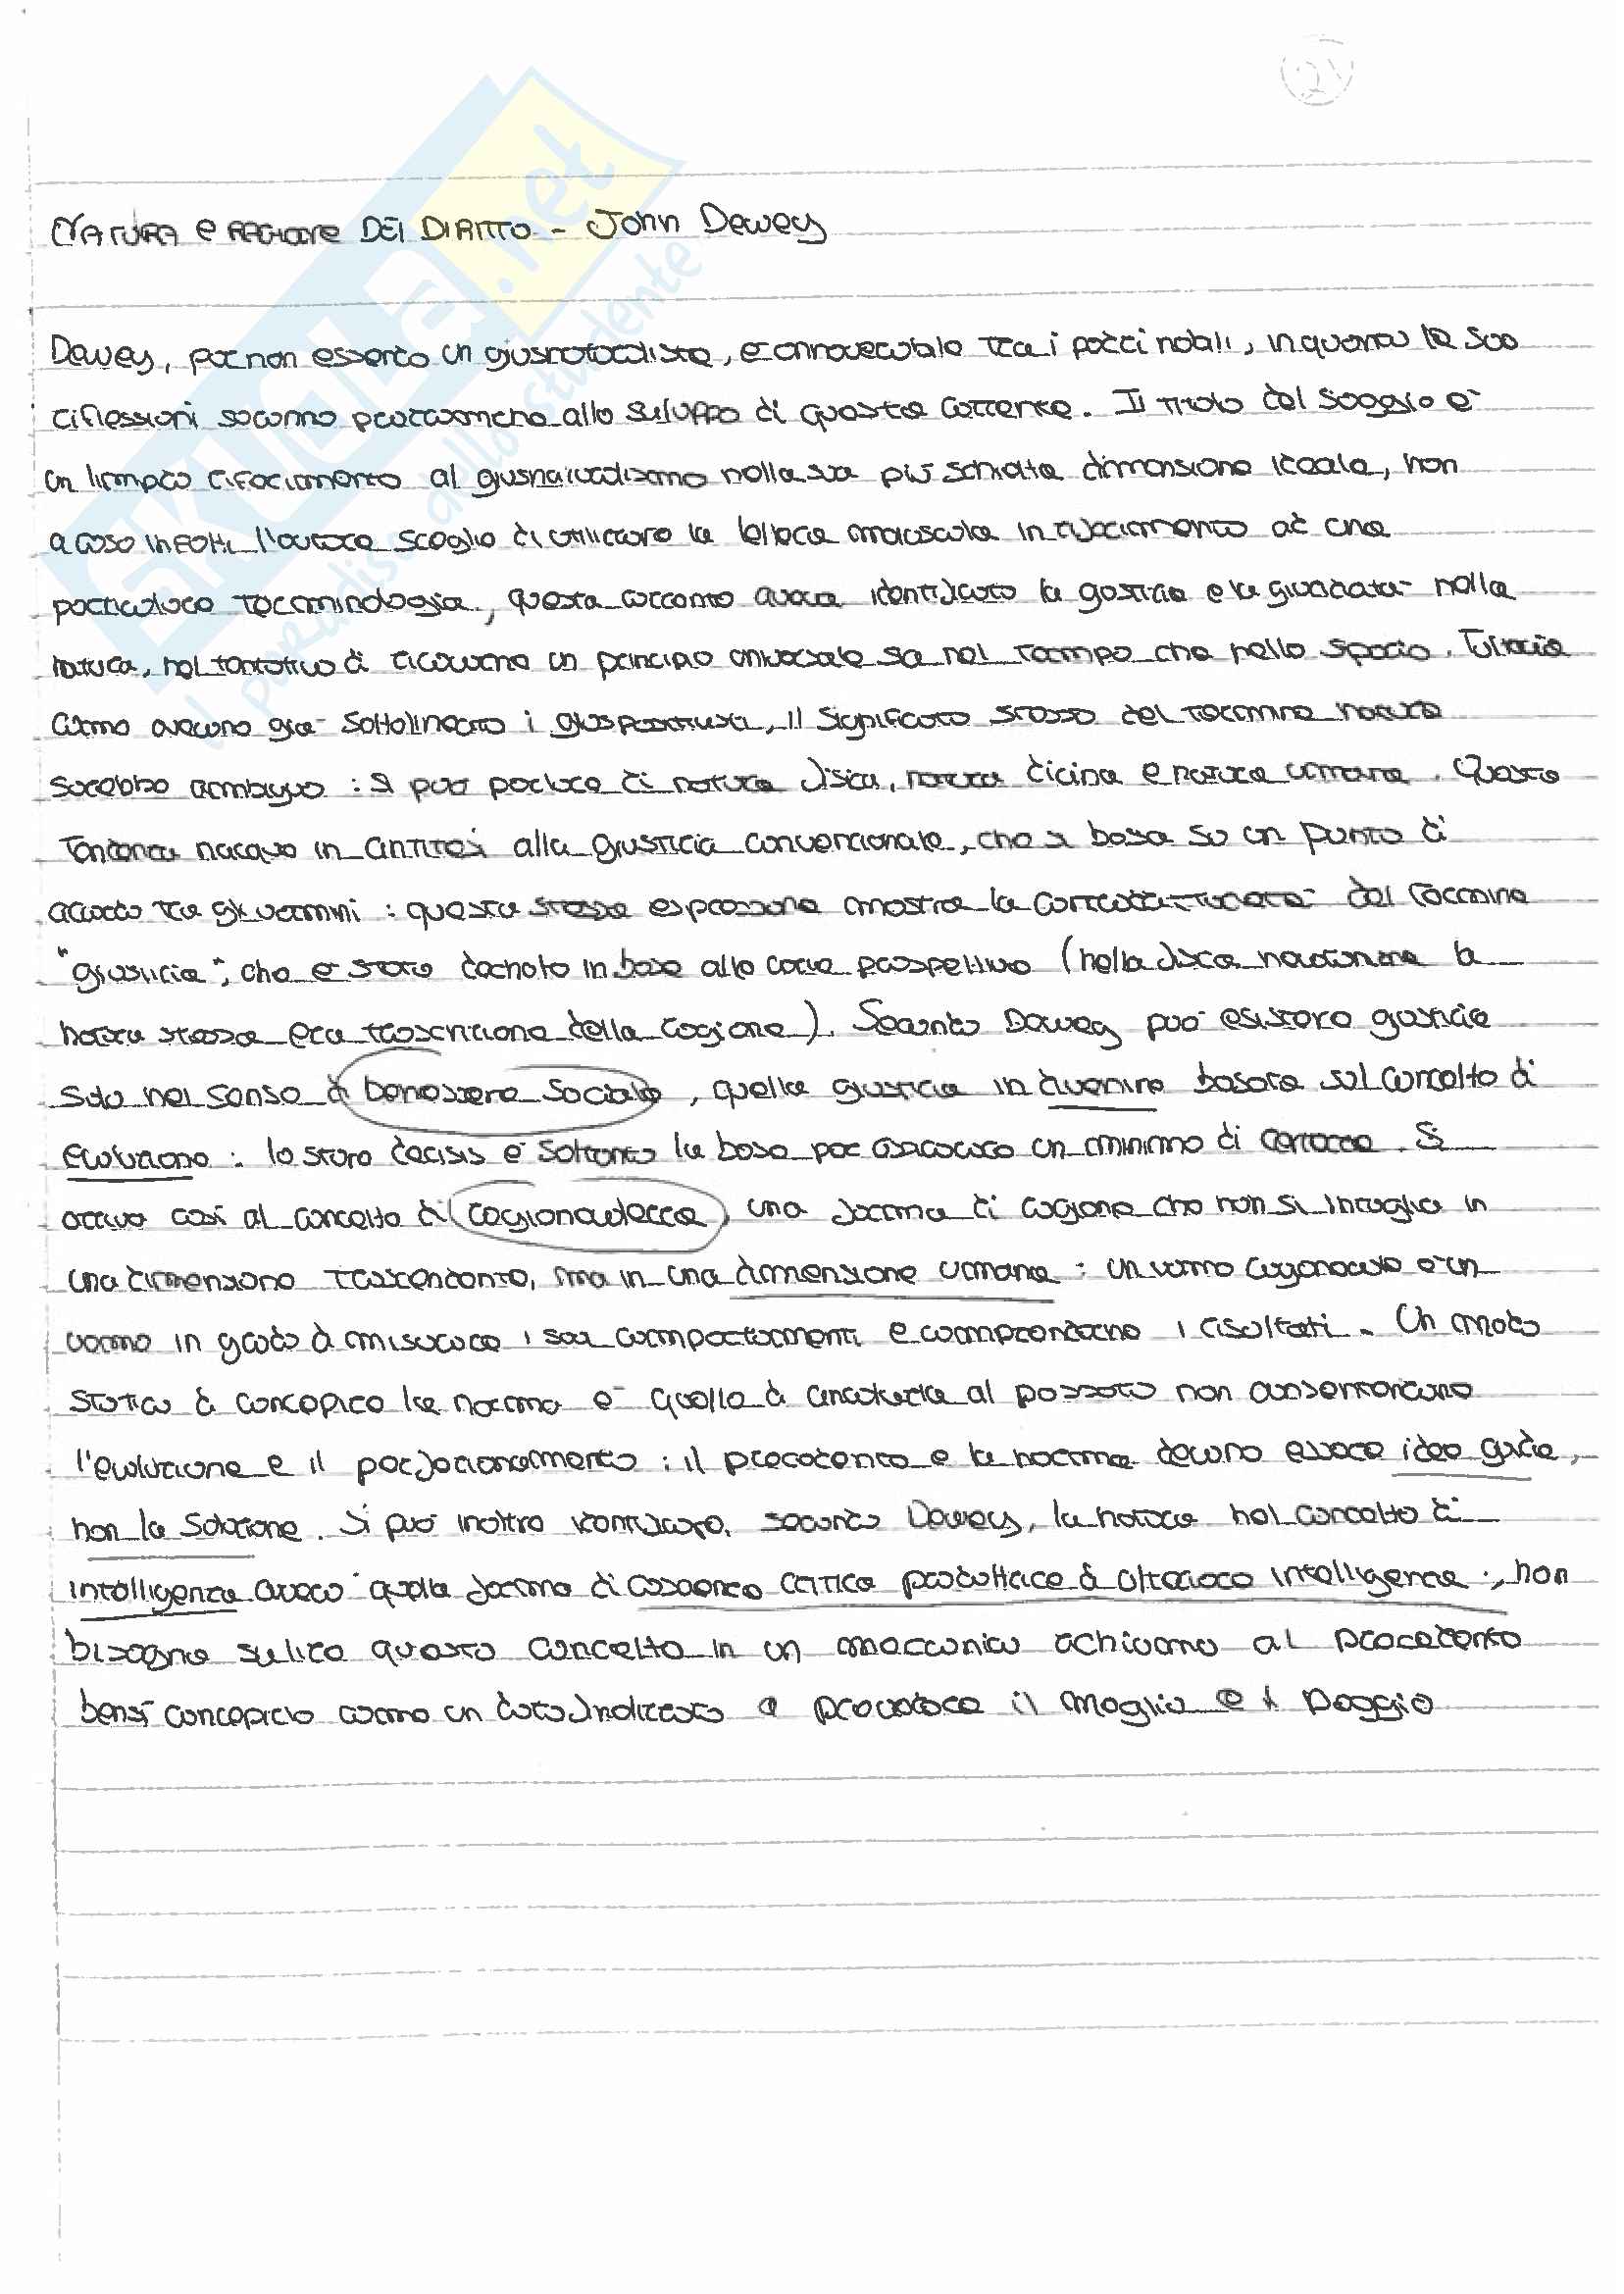 NATURA e RAGIONE DEL DIRITTO - John Dewey
Dewey, pur non essendo un giusnaturalista, è annoverabile tra i padri nobili, in quanto le sue
riflessioni saranno allo sviluppo di questa corrente. Il titolo del saggio è
un limpido riferimento al giusnaturalismo nella sua più schietta dimensione ideale, non
a caso infatti l'autore sceglie di utilizzare la lettera maiuscola in riferimento ad una
particolare terminologia, questa corrente aveva identificato la giustizia e la giuridicità nella
natura, nel tentativo di ricavarne un principio universale sia nel tempo che nello spazio. Tuttavia
come avevano già sottolineato i giuspositivisti, il significato stesso del termine natura
sarebbe ambiguo : si può parlare di natura fisica, natura divina e natura umana. Questa
tendenza nacque in antitesi alla giustizia convenzionale, che si basa su un punto di
accordo tra gli uomini : questa stessa espressione mostra la del termine
"giustizia", che è stato declinato in base alle varie prospettive (nella fisica newtoniana la
natura stessa era trascrizione della ragione). Secondo Dewey può esistere giustizia
solo nel senso di benessere sociale, quella giustizia in divenire basata sul concetto di
evoluzione : lo stare decisis è soltanto la base per assicurare un minimo di certezza. Si
arriva così al concetto di ragionevolezza, una forma di ragione che non si incaglia in
una dimensione trascendente, ma in una dimensione umana : un uomo ragionevole è un
uomo in grado di misurare i suoi comportamenti e comprenderne i risultati. Un modo
statico di concepire la norma è quello di ancorarla al passato non consentendone
l'evoluzione e il perfezionamento : il precedente e la norma devono essere idee guida,
non la soluzione. Si può inoltre identificare, secondo Dewey, la natura nel concetto di
intelligenza ovvero quella forma di coscienza critica produttrice di ulteriore intelligenza ; non
bisogna svilire questo concetto in un meccanico richiamo al precedente
bensì concepirlo come un dato indirizzato a prevedere il meglio e il peggio
SKUOLA.net
il paradiso dello studente